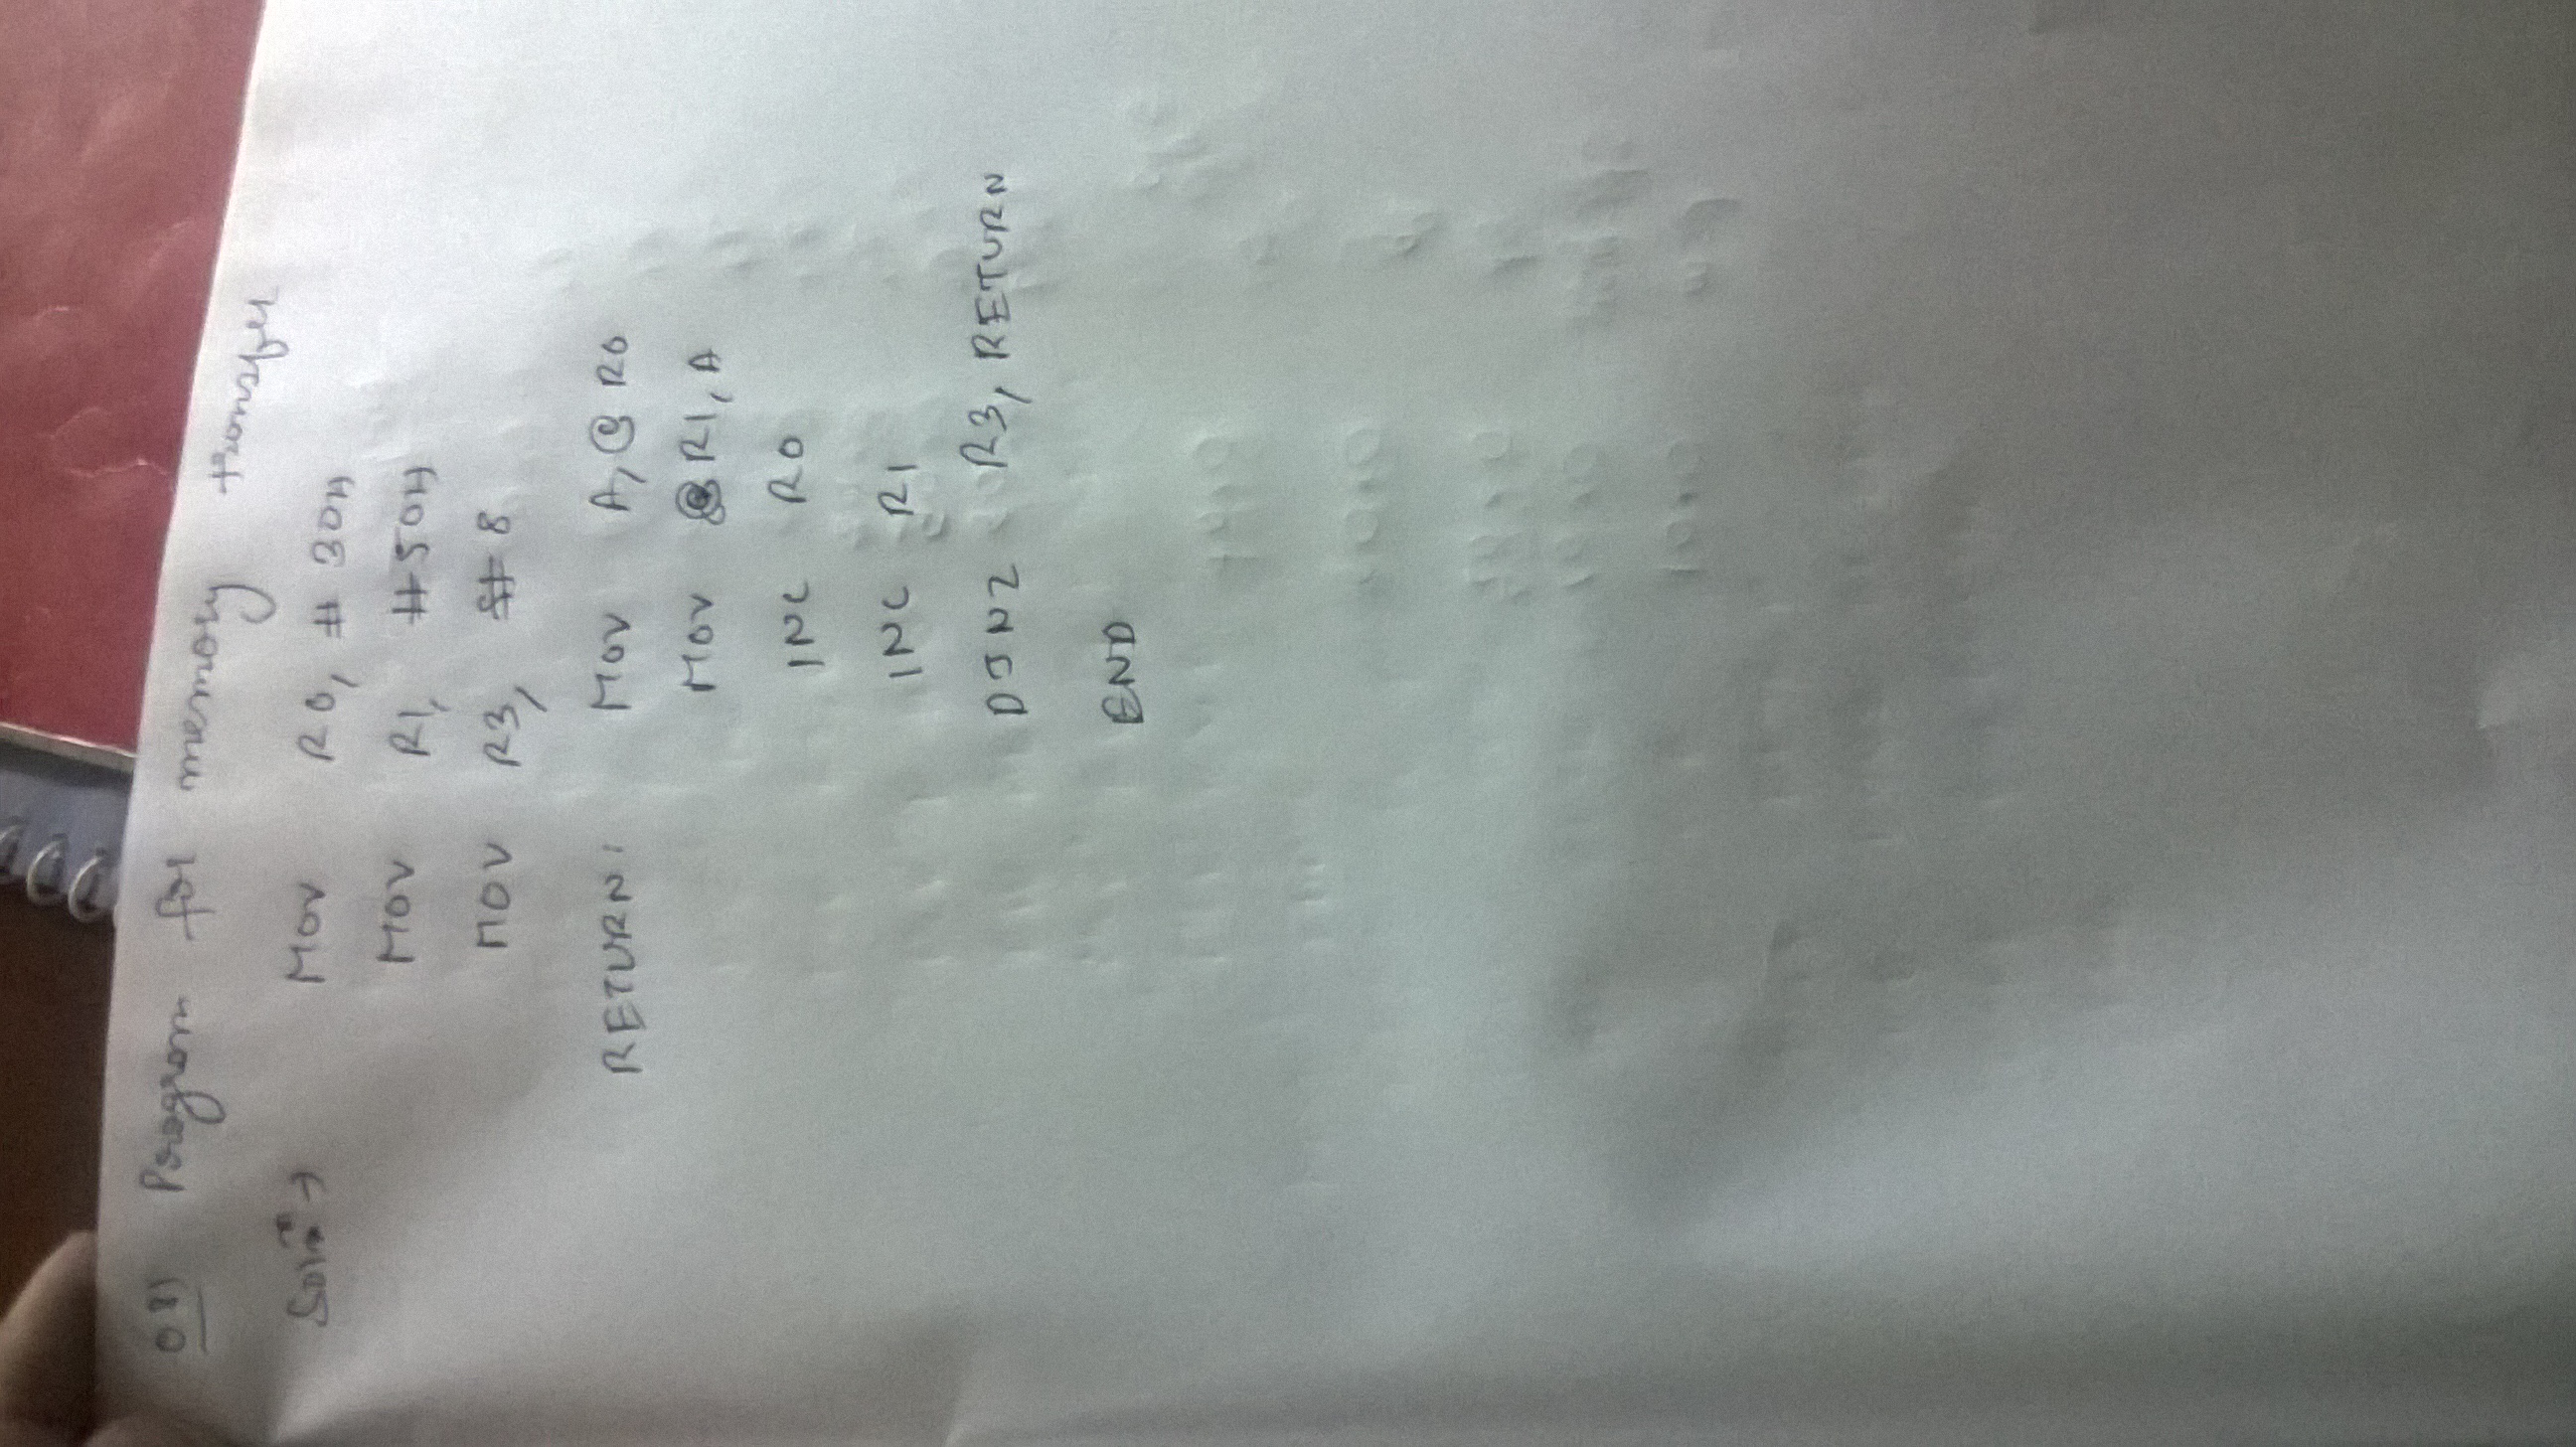 Q8) Program for memory transfer
Soln → MOV R0, # 30H
MOV R1, #50H
MOV R3, #8
RETURN: MOV A, @R0
MOV @R1, A
INC R0
INC R1
DJNZ R3, RETURN
END